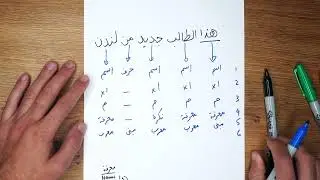 هذا الطالب جديد من لندن
اسم اسم اسم حرف اسم 1
x١ x١ x١ — x١ 2
م م م — م 3
معرفة معرفة نكرة — معرفة 4
مبني معرب معرب مبني معرب 5
6
معرفة